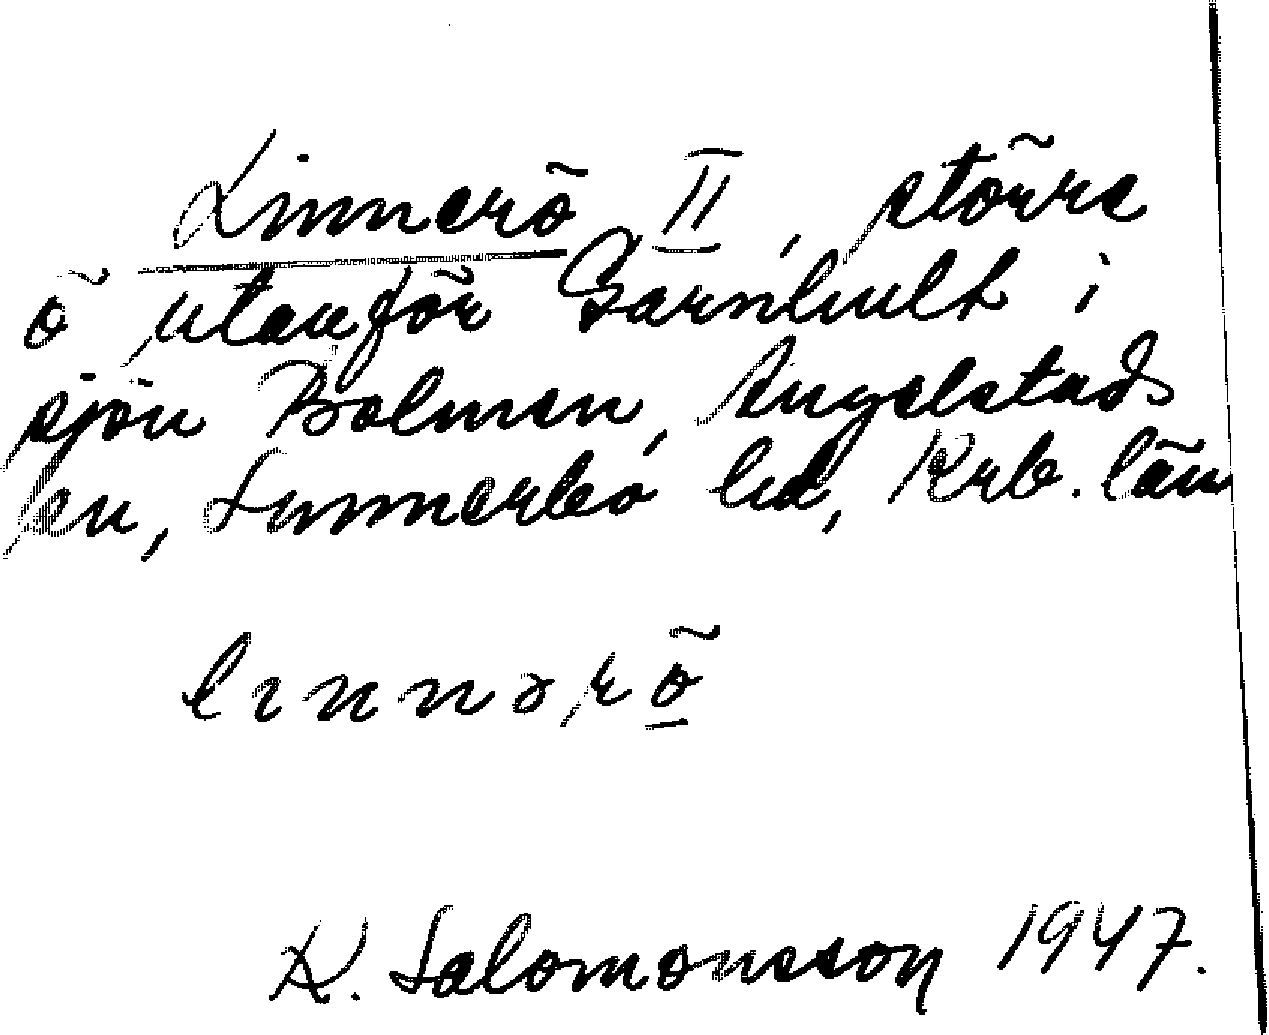 Linnerö II, större
ö utanför Garnhult i
sjön Bolmen, Angelstads
sn, Sunnerbo hd, Krb. län
linnərö
K. Salomonsson 1947.